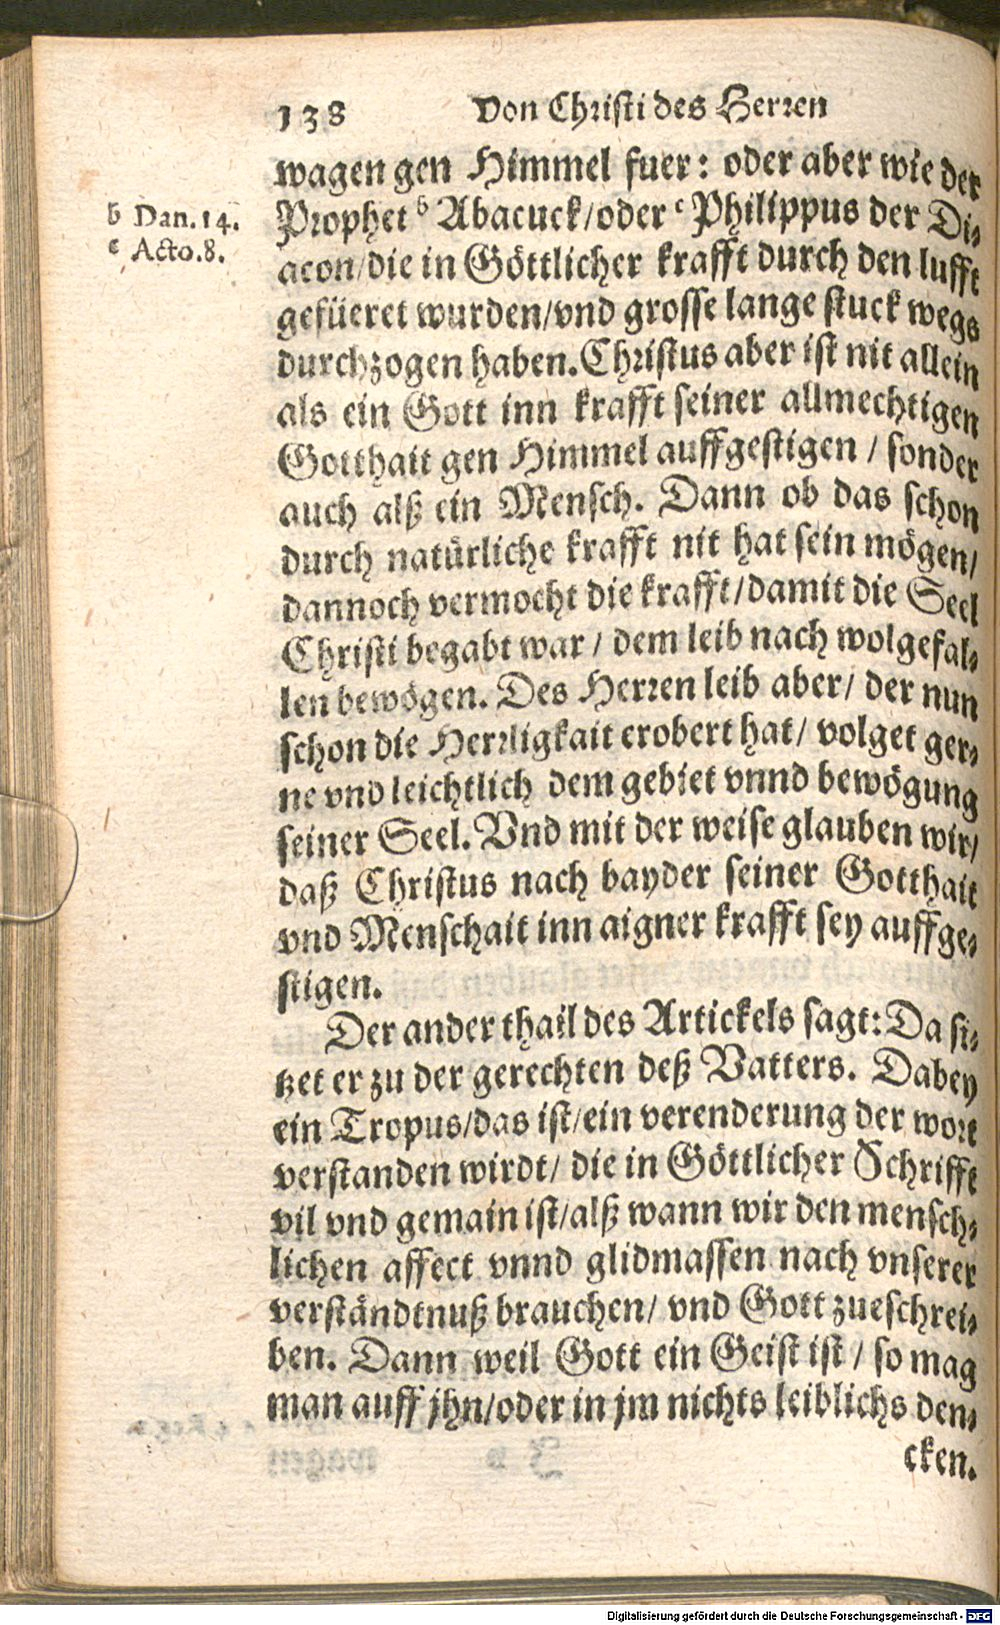 138 Von Christi des Herren
wagen gen Himmel fuer: oder aber wie der
b Dan. 14.
c Acto. 8.
Prophet b Abacuck/oder c Philippus der Di-
acon/die in Göttlicher krafft durch den lufft
gefüeret wurden/vnd grosse lange stuck wegs
durchzogen haben. Christus aber ist nit allein
als ein Gott inn krafft seiner allmechtigen
Gotthait gen Himmel auffgestigen / sonder
auch alß ein Mensch. Dann ob das schon
durch natürliche krafft nit hat sein mögen/
dannoch vermocht die krafft/damit die Seel
Christi begabt war / dem leib nach wolgefal-
len bewögen. Des Herren leib aber/ der nun
schon die Herrligkait erobert hat/ volget ger-
ne vnd leichtlich dem gebiet vnnd bewögung
seiner Seel. Vnd mit der weise glauben wir/
daß Christus nach bayder seiner Gotthait
vnd Menschait inn aigner krafft sey auffge-
stigen.
Der ander thail des Artickels sagt: Da si-
tzet er zu der gerechten deß Vatters. Dabey
ein Tropus/das ist/ein verenderung der wort
verstanden wirdt/ die in Göttlicher Schrifft
vil vnd gemain ist/alß wann wir den mensch-
lichen affect vnnd glidmassen nach vnserer
verständtnuß brauchen/ vnd Gott zueschrei-
ben. Dann weil Gott ein Geist ist / so mag
man auff jhn/oder in jm nichts leiblichs den-
cken.
Digitalisierung gefördert durch die Deutsche Forschungsgemeinschaft - DFG